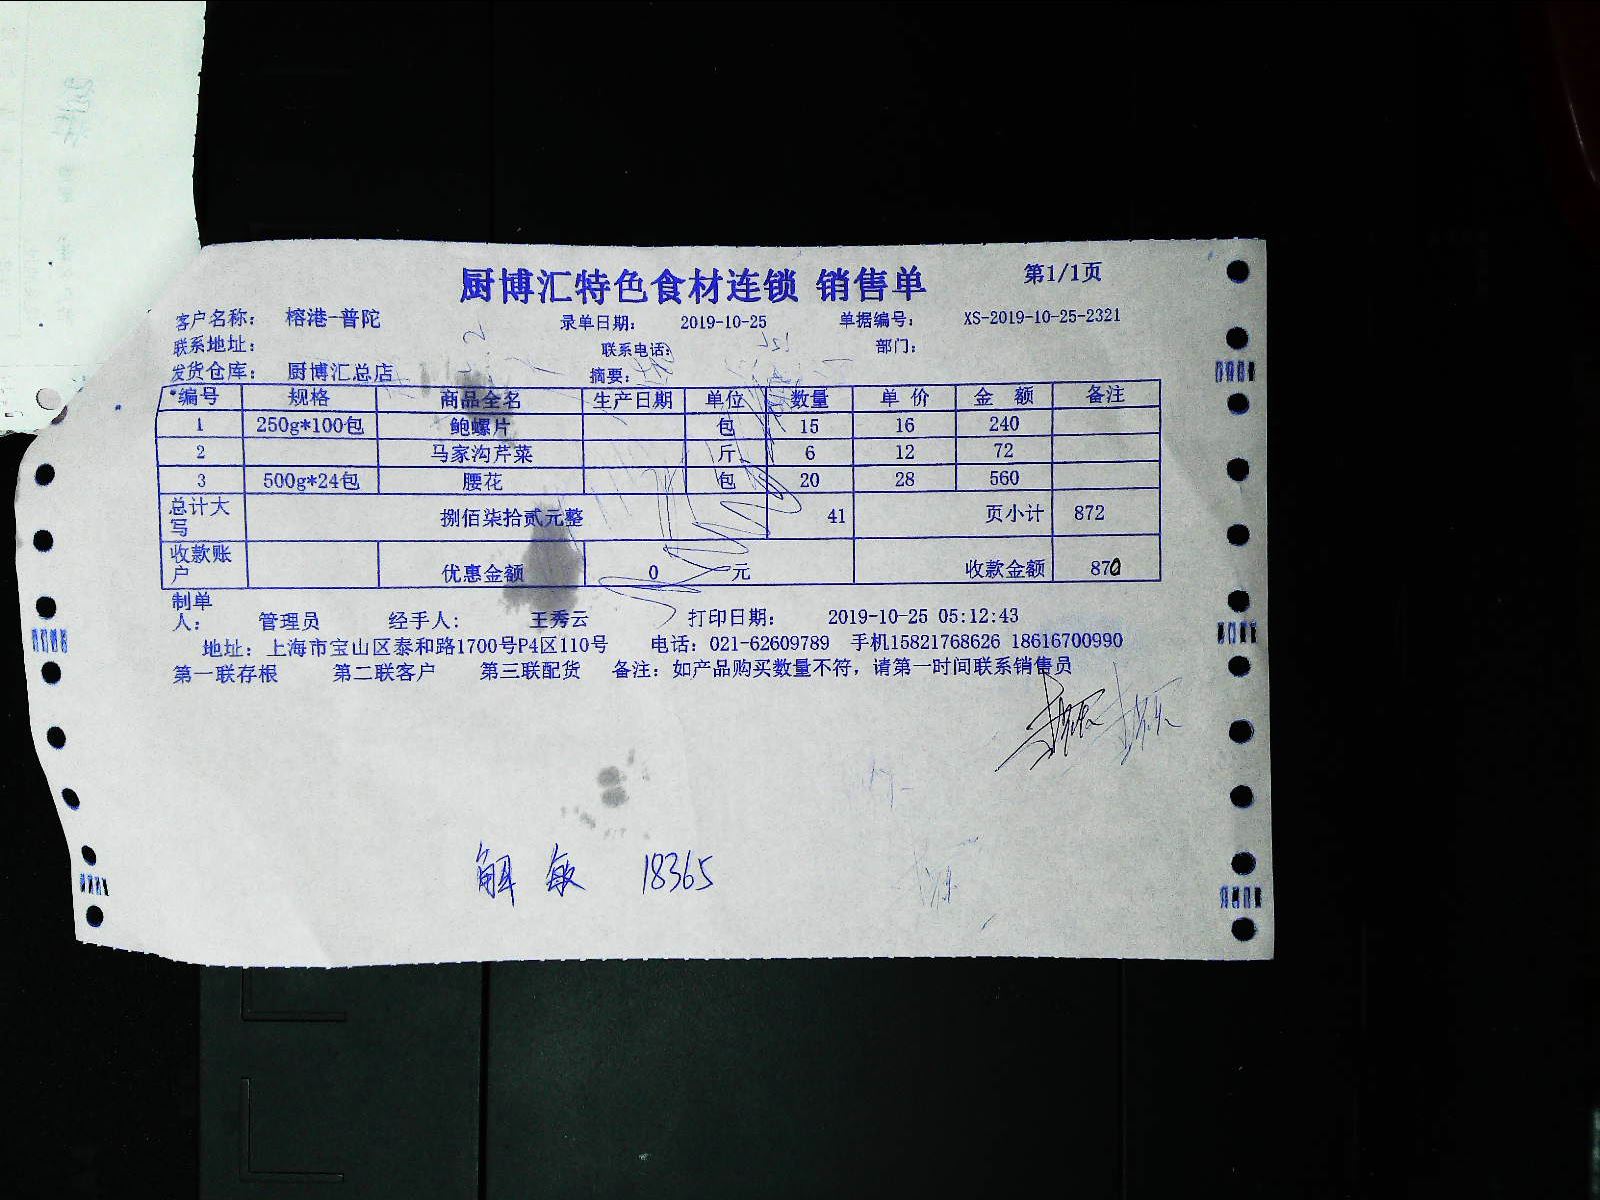 厨博汇特色食材连锁 销售单 第1/1页
客户名称： 榕港-普陀 录单日期： 2019-10-25 单据编号： XS-2019-10-25-2321
联系地址： 联系电话： 部门：
发货仓库： 厨博汇总店 摘要：
编号 规格 商品全名 生产日期 单位 数量 单 价 金 额 备注
1 250g*100包 鲍螺片 包 15 16 240
2 马家沟芹菜 斤 6 12 72
3 500g*24包 腰花 包 20 28 560
总计大写 捌佰柒拾贰元整 41 页小计 872
收款账户 优惠金额 0 元 收款金额 870
制单人： 管理员 经手人： 王秀云 打印日期： 2019-10-25 05:12:43
地址：上海市宝山区泰和路1700号P4区110号 电话：021-62609789 手机15821768626 18616700990
第一联存根 第二联客户 第三联配货 备注：如产品购买数量不符，请第一时间联系销售员
解 敏 18365